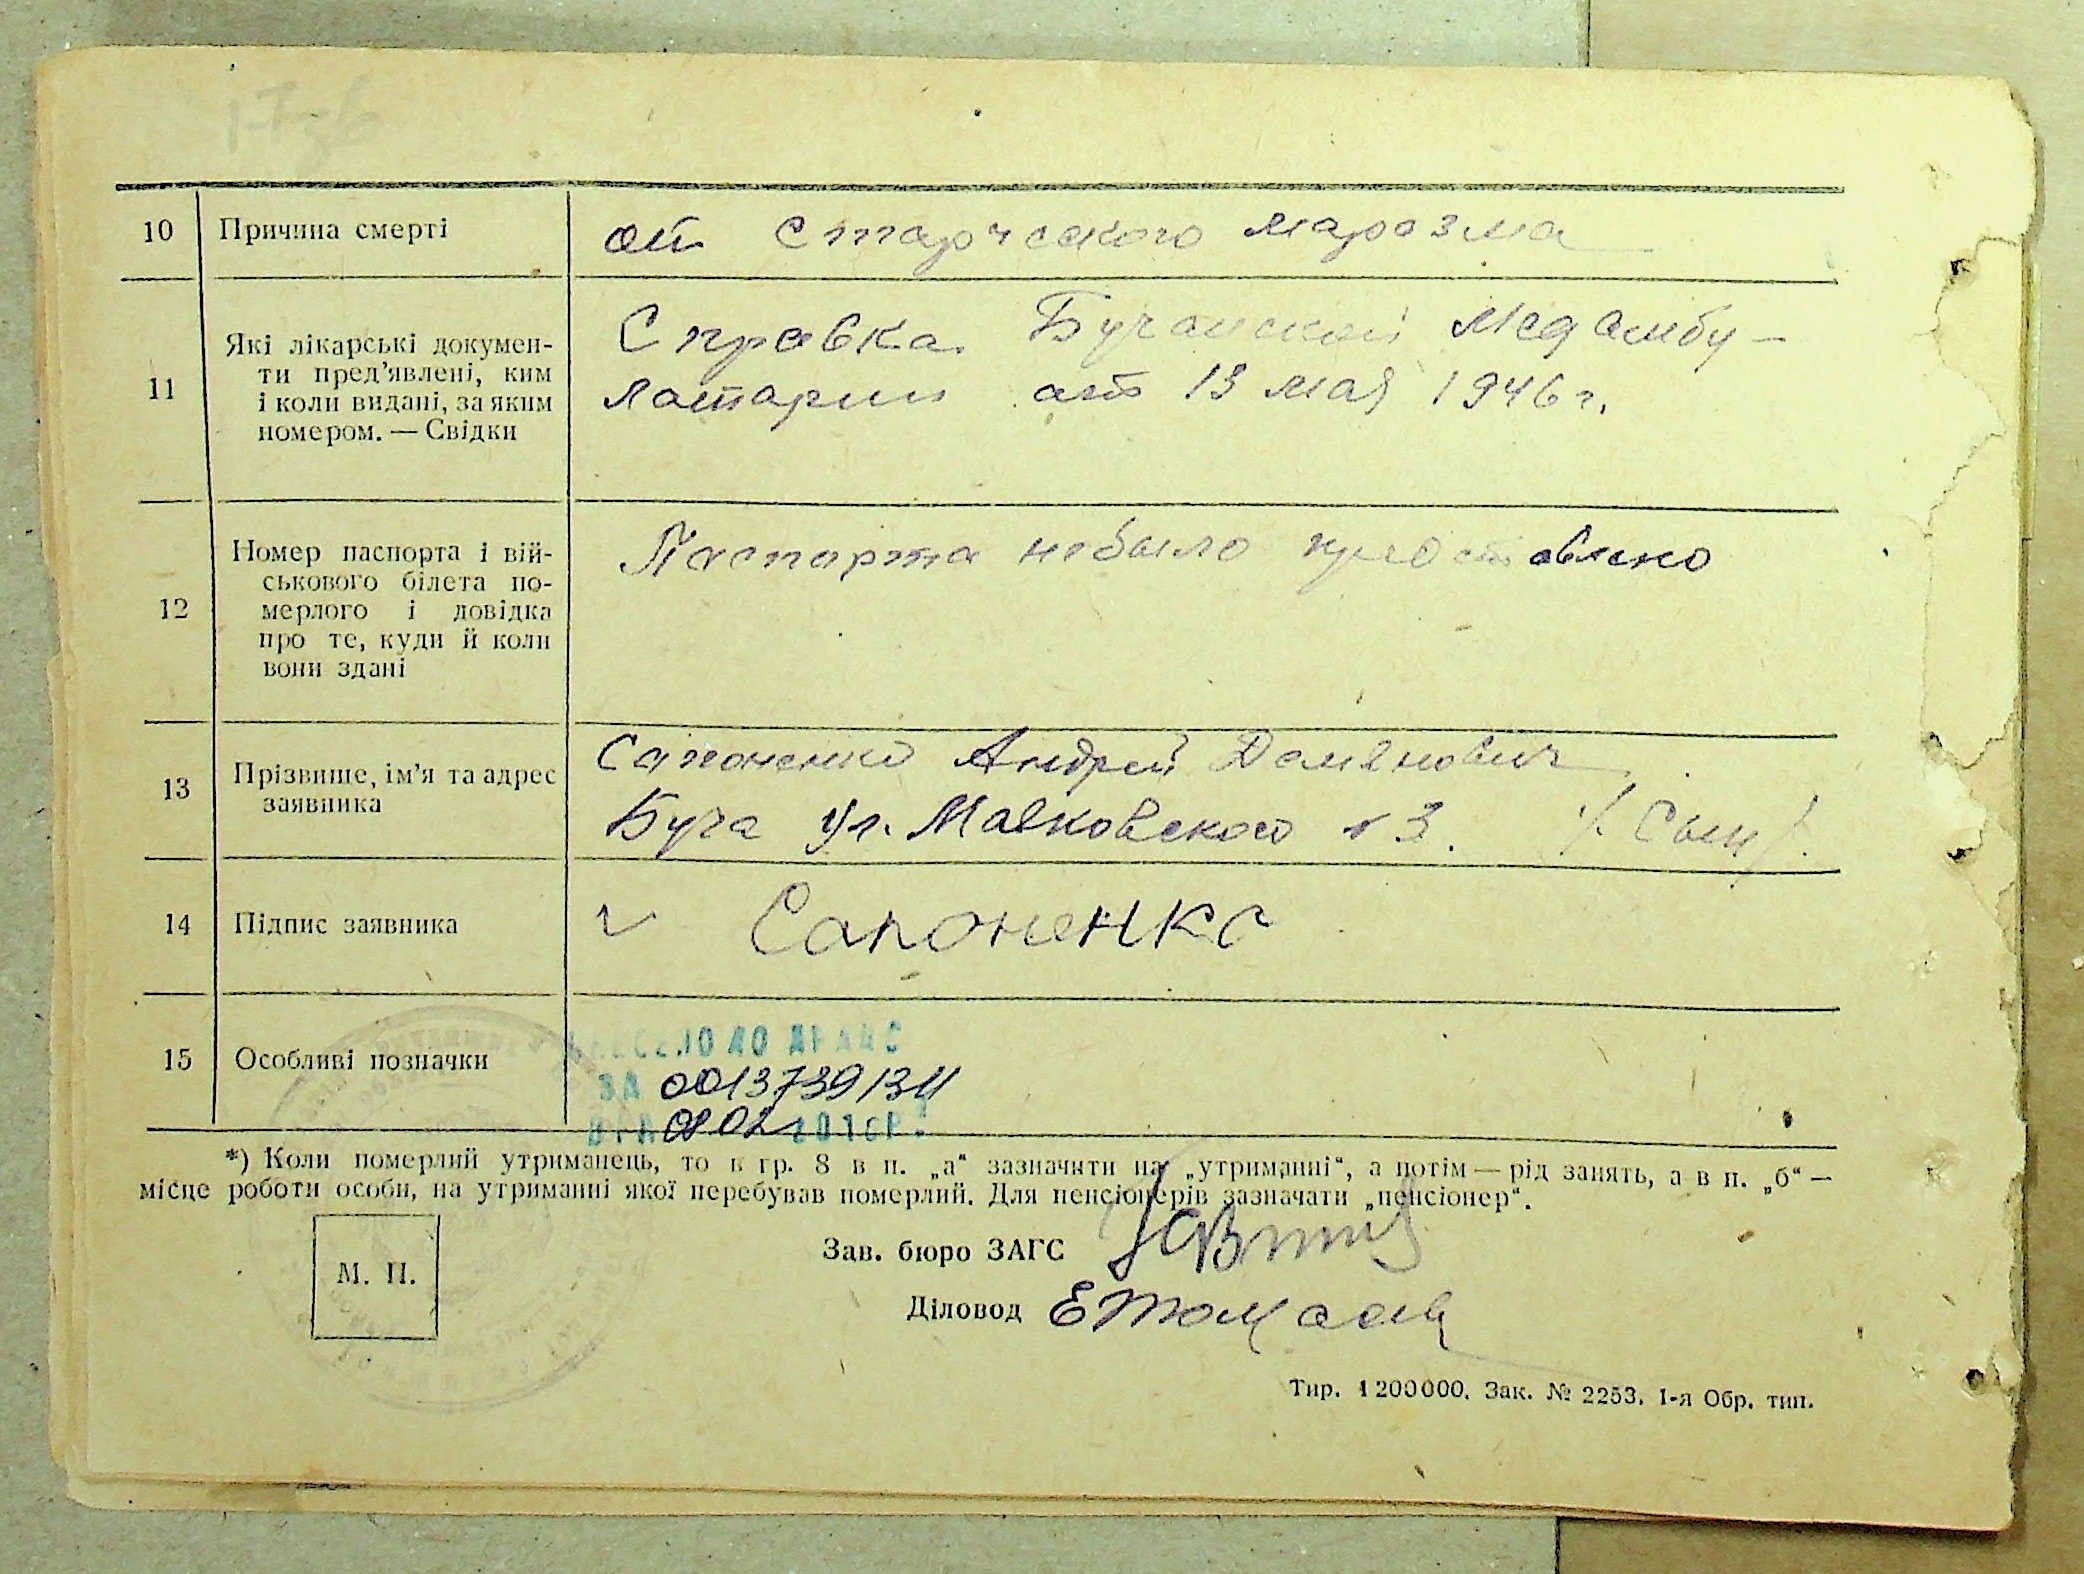 10 Причина смерті от старческого маразма
11 Які лікарські докумен-
ти пред’явлені, ким
і коли видані, за яким
номером. — Свідки
Справка Бучанской медамбу-
латарии от 13 мая 1946 г.
12 Номер паспорта і вій-
ськового білета по-
мерлого і довідка
про те, куди й коли
вони здані
Паспорта небыло предоставлено
13 Прізвище, ім’я та адрес
заявника
Сапоненко Андрей Демянович
Буча ул. Маяковского № 3. /Сын/.
14 Підпис заявника Сапоненко
15 Особливі позначки
ВНЕСЕНО ДО ДРАЦС
ЗА 00137391311
08 02 201 Р.
*) Коли померлий утриманець, то в гр. 8 в п. „а“ зазначити на „утриманні“, а потім — рід занять, а в п. „б“ —
місце роботи особи, на утриманні якої перебував померлий. Для пенсіонерів зазначати „пенсіонер“.
М. П.
Зав. бюро ЗАГС
Діловод
Тир. 1 200 000. Зак. № 2253. 1-я Обр. тип.